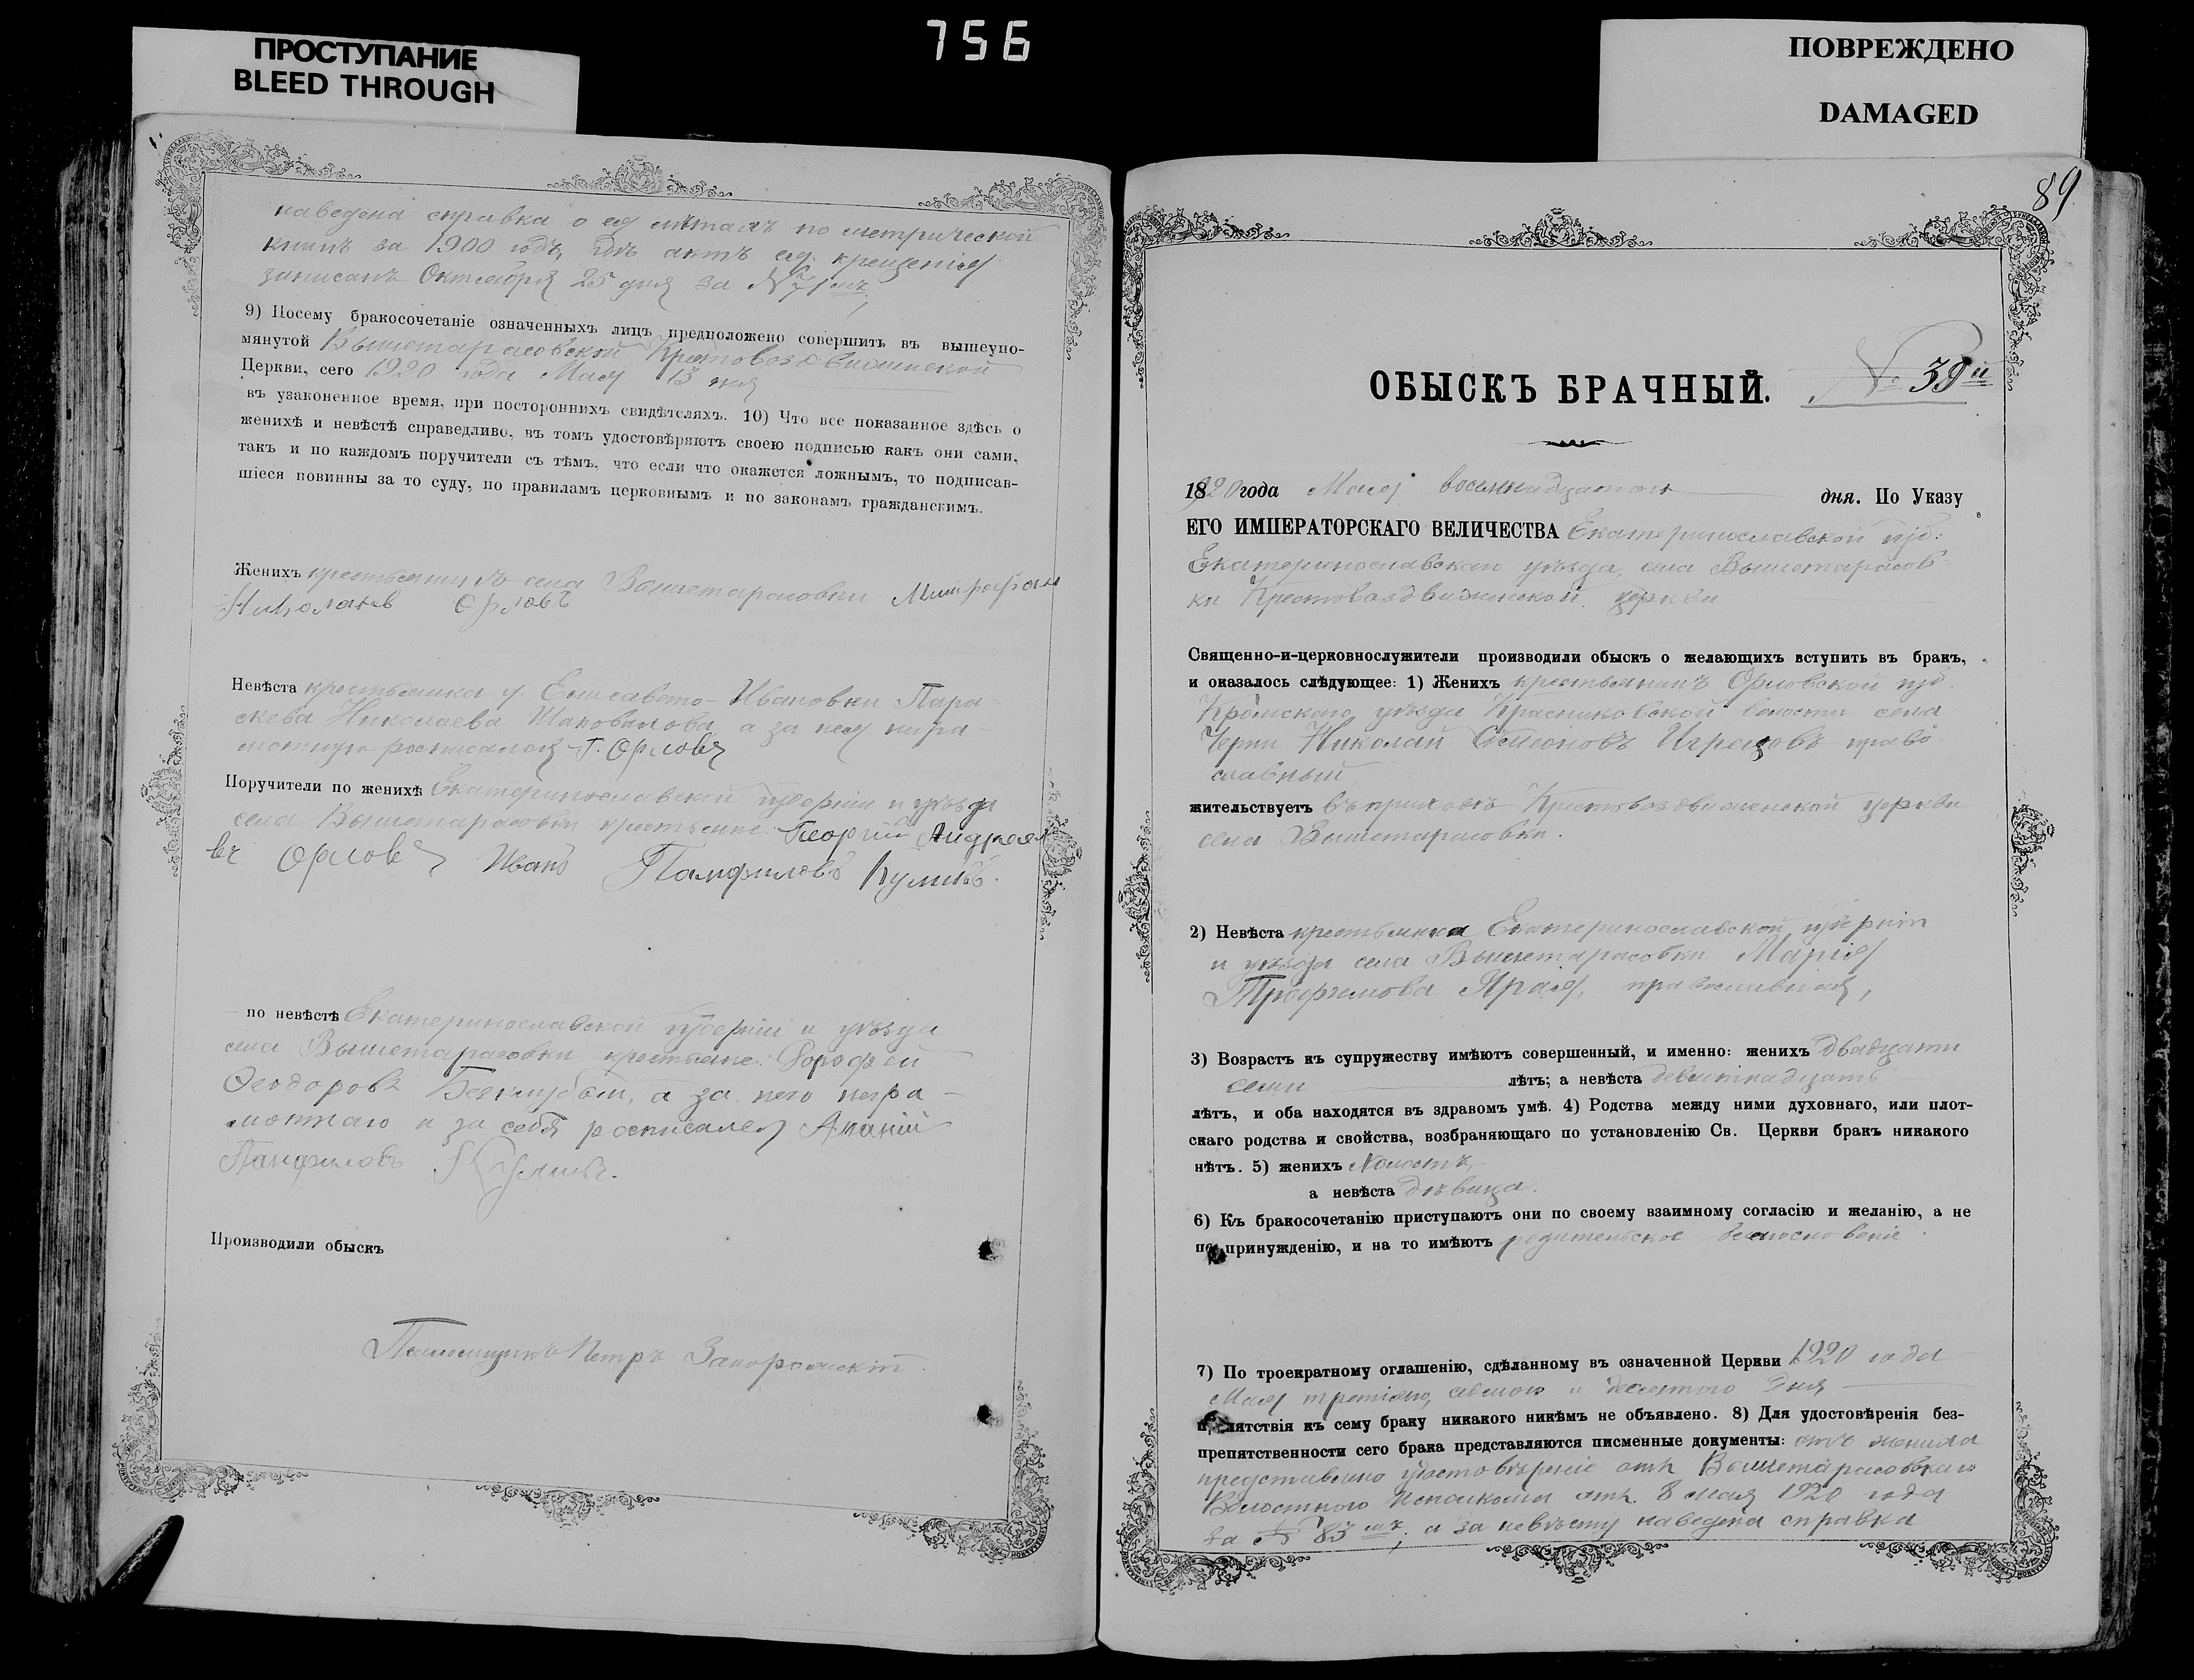 756
ПРОСТУПАНИЕ
BLEED THROUGH
ПОВРЕЖДЕНО
DAMAGED
наведена справка о ея лѣтахъ по метрической
книгѣ за 1900 годъ, гдѣ актъ ея крещенія
записанъ Октября 25 дня за №
9) Посему бракосочетаніе означенныхъ лицъ предположено совершить въ вышеупо-
мянутой Вышетарасовской Крестовоздвиженской
Церкви, сего 1920 года Мая 13 дня
въ узаконенное время, при постороннихъ свидѣтеляхъ. 10) Что все показанное здѣсь о
женихѣ и невѣстѣ справедливо, въ томъ удостовѣряютъ своею подписью какъ они сами,
такъ и по каждомъ поручители съ тѣмъ, что если что окажется ложнымъ, то подписав-
шіеся повинны за то суду, по правиламъ церковнымъ и по законамъ гражданскимъ.
Женихъ крестьянинъ села Вышетарасовки Митрофан
Николаев Орловъ
Невѣста крестьянка д. Елисавето-Ивановки Пара-
скева Николаева Шаповалова, а за нея негра-
мотную росписался Г. Орловъ
Поручители по женихѣ Екатеринославской губерніи и уѣзда
села Вышетарасовки крестьяне: Георгій Андрее
въ Орловъ Иванъ Панфиловъ Куликъ.
по невѣстѣ Екатеринославской губерніи и уѣзда
села Вышетарасовки крестьяне: Дорофей
Ѳеодоровъ а за него негра-
мотнаго и за себя росписался Ананій
Панфиловъ Куликъ.
Производили обыскъ
Псаломщикъ Петръ Запорожскій
89
ОБЫСКЪ БРАЧНЫЙ. № 39й
1920 года Мая восемнадцатого дня. По Указу
ЕГО ИМПЕРАТОРСКАГО ВЕЛИЧЕСТВА Екатеринославской губ.
Екатеринославскаго уѣзда, села Вышетарасов-
ки Крестовоздвиженской церкви
Священно-и-церковнослужители производили обыскъ о желающихъ вступить въ бракъ,
и оказалось слѣдующее: 1) Женихъ крестьянинъ Орловской губ.
Кромскаго уѣзда волости села
Черни Николай Симеоновъ Игрецовъ право
славный
жительствуетъ въ приходѣ Крестовоздвиженской церкви
села Вышетарасовки.
2) Невѣста крестьянка Екатеринославской губерніи
и уѣзда села Вышетарасовки Марія
Трофимова православная,
3) Возрастъ къ супружеству имѣютъ совершенный, и именно: женихъ двадцати
семи лѣтъ; а невѣста девятнадцать
лѣтъ, и оба находятся въ здравомъ умѣ. 4) Родства между ними духовнаго, или плот-
скаго родства и свойства, возбраняющаго по установленію Св. Церкви бракъ никакого
нѣтъ. 5) женихъ холостъ
а невѣста дѣвица.
6) Къ бракосочетанію приступаютъ они по своему взаимному согласію и желанію, а не
по принужденію, и на то имѣютъ родительское благословеніе.
7) По троекратному оглашенію, сдѣланному въ означенной Церкви 1920 года
Мая третьяго, и десятого дня
препятствія къ сему браку никакого никѣмъ не объявлено. 8) Для удостовѣренія без-
препятственности сего брака представляются писменные документы: отъ жениха
представлено удостовѣреніе отъ Вышетарасовскаго
Волостного Исполкома отъ 8 мая 1920 года
за № 83мъ, а за невѣсту наведена справка